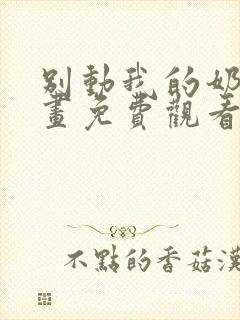 別動我的奶
畫免費觀看
不點的香菇漢